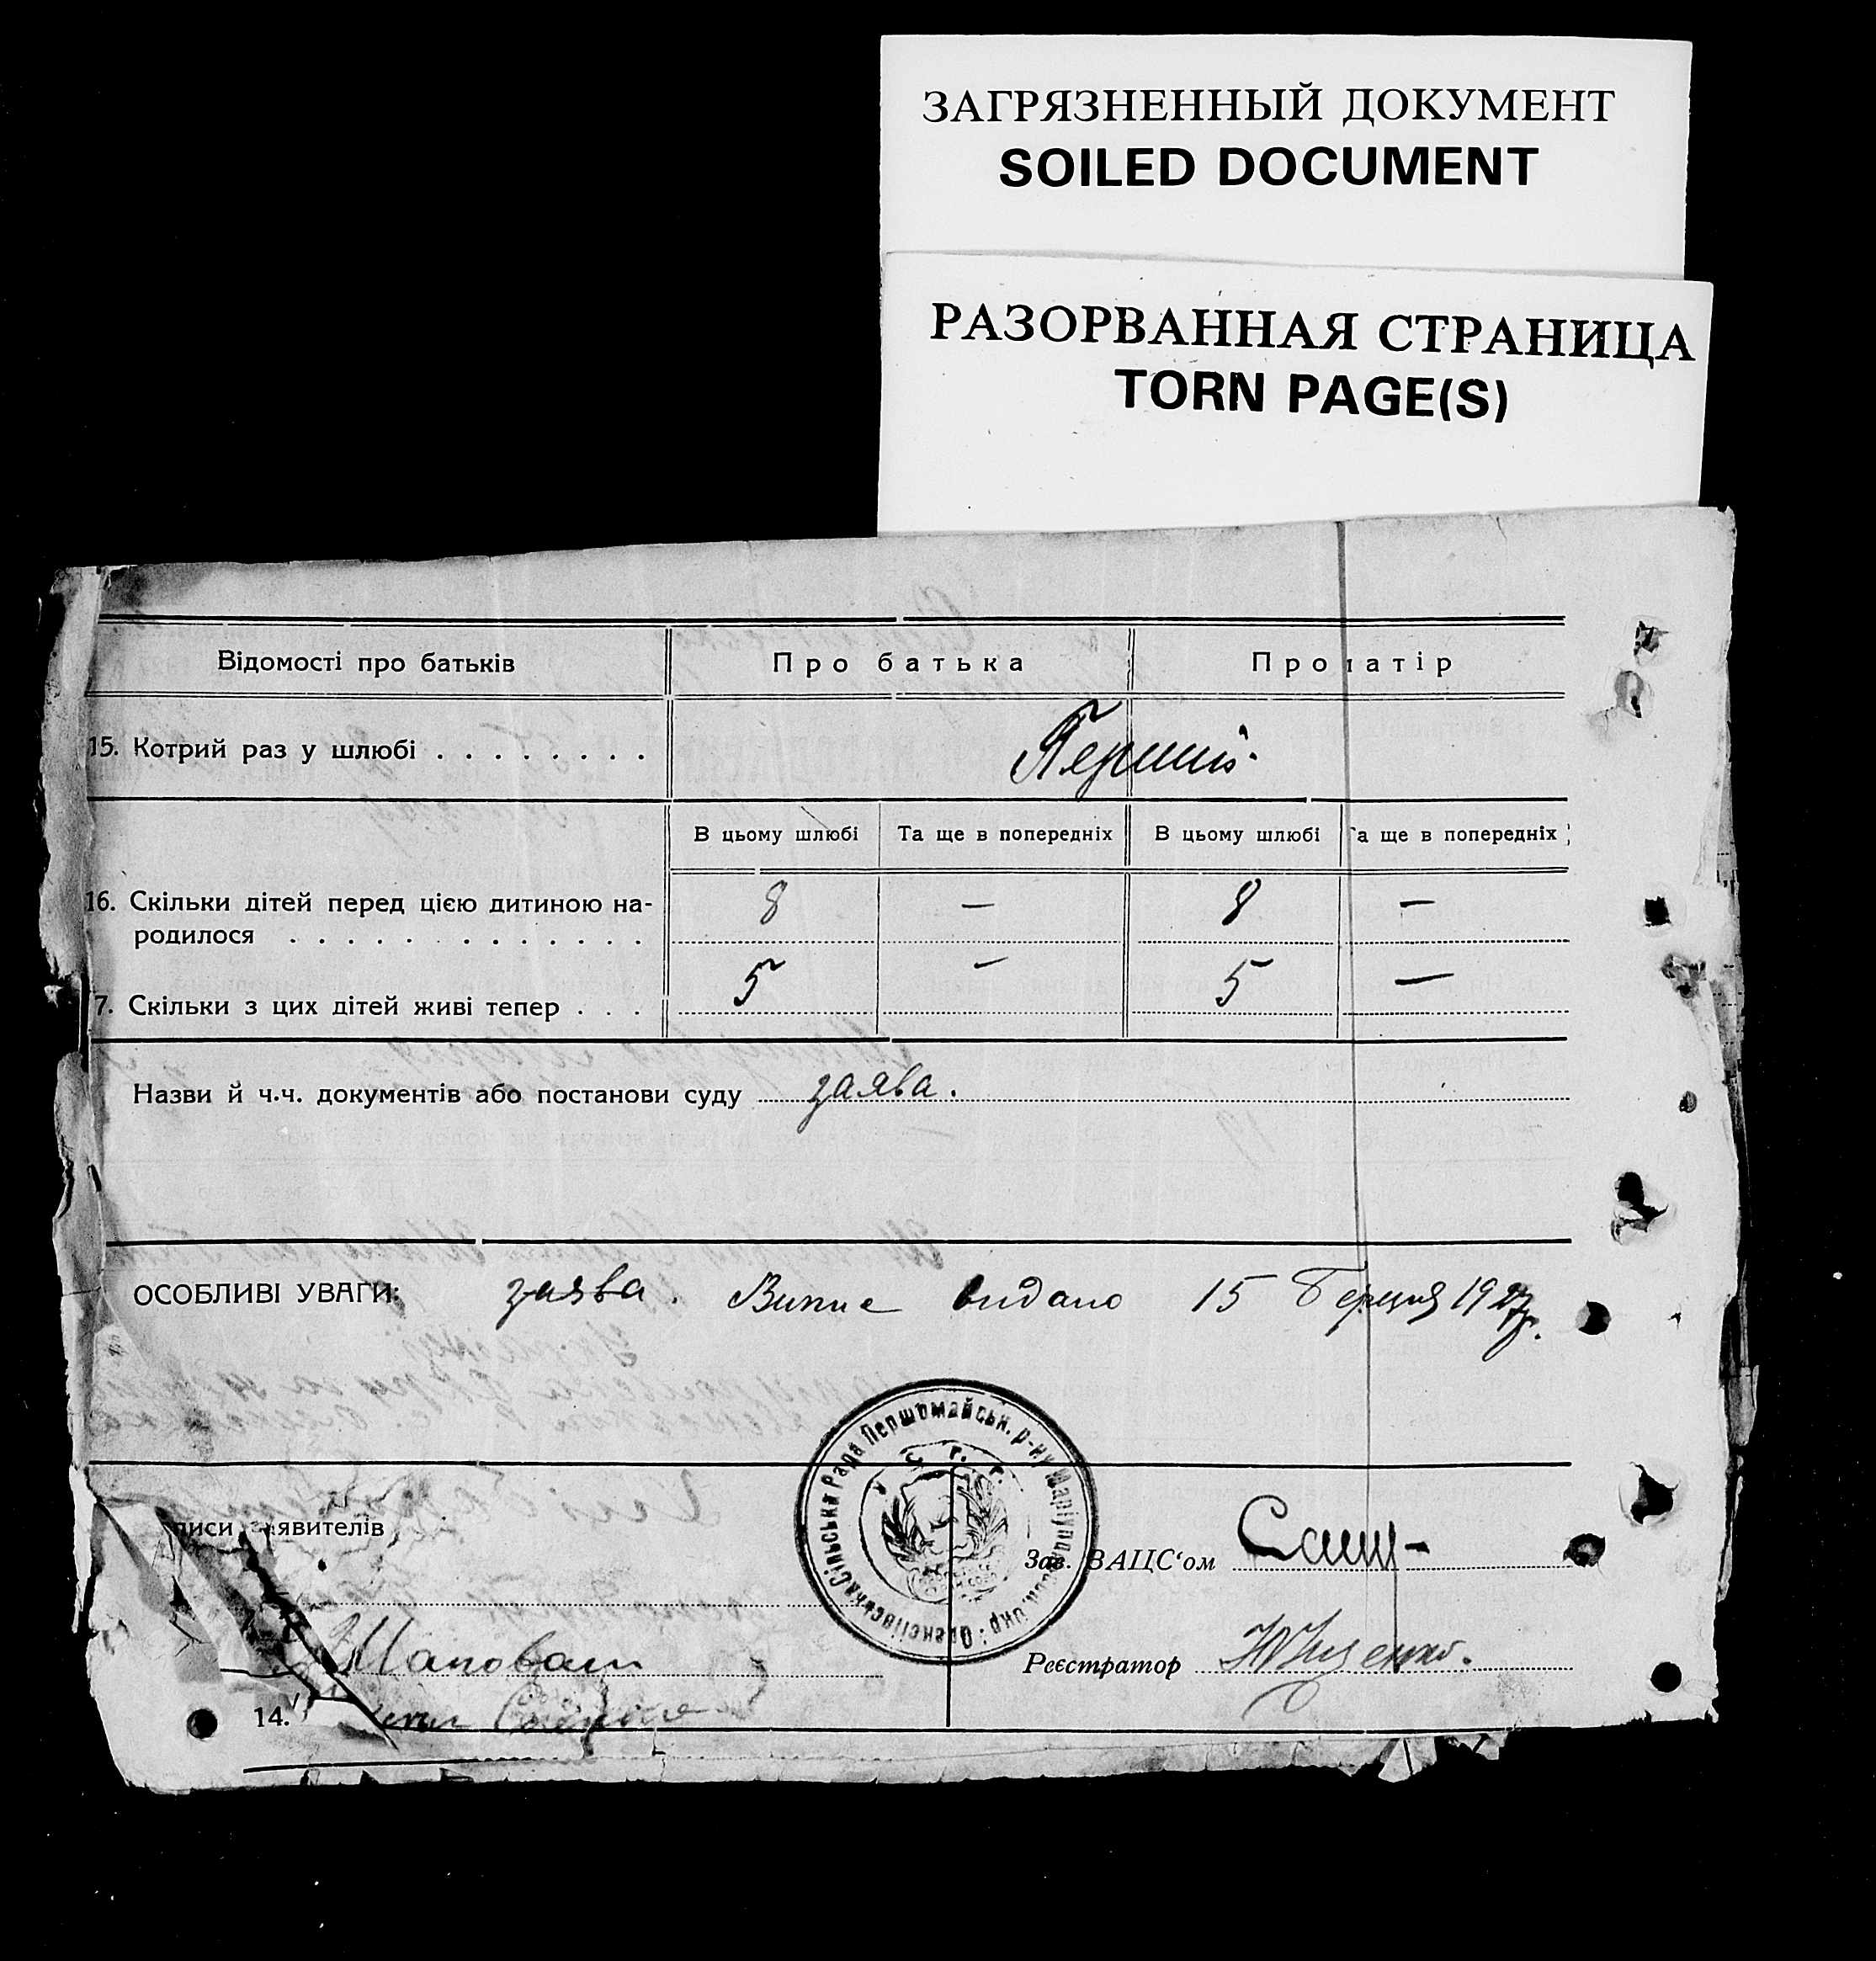 ЗАГРЯЗНЕННЫЙ ДОКУМЕНТ
SOILED DOCUMENT
РАЗОРВАННАЯ СТРАНИЦА
TORN PAGE(S)
Відомості про батьків Про батька Про матір
15. Котрий раз у шлюбі . . . . . . . . Перший.
В цьому шлюбі Та ще в попередніх В цьому шлюбі Та ще в попередніх
16. Скільки дітей перед цією дитиною на- 8 — 8 —
родилося . . . . . . . . . . . . .
7. Скільки з цих дітей живі тепер . . . 5 — 5 —
Назви й ч.ч. документів або постанови суду заява.
ОСОБЛИВІ УВАГИ: заява. Випис видано 15 Березня 1927р.
Сільська Рада Першомайськ. р-ну Маріупольськ. окр.
У С Р Р
писи заявителів
Зав. ВАЦС‘ом
Шаповал
Реєстратор
14.